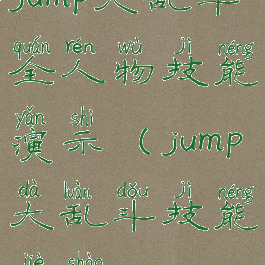 jump大乱斗
quán rén wù jì néng
全人物技能
yǎn shì
演示(jump
dà luàn dǒu jì néng
大乱斗技能
jiè shào